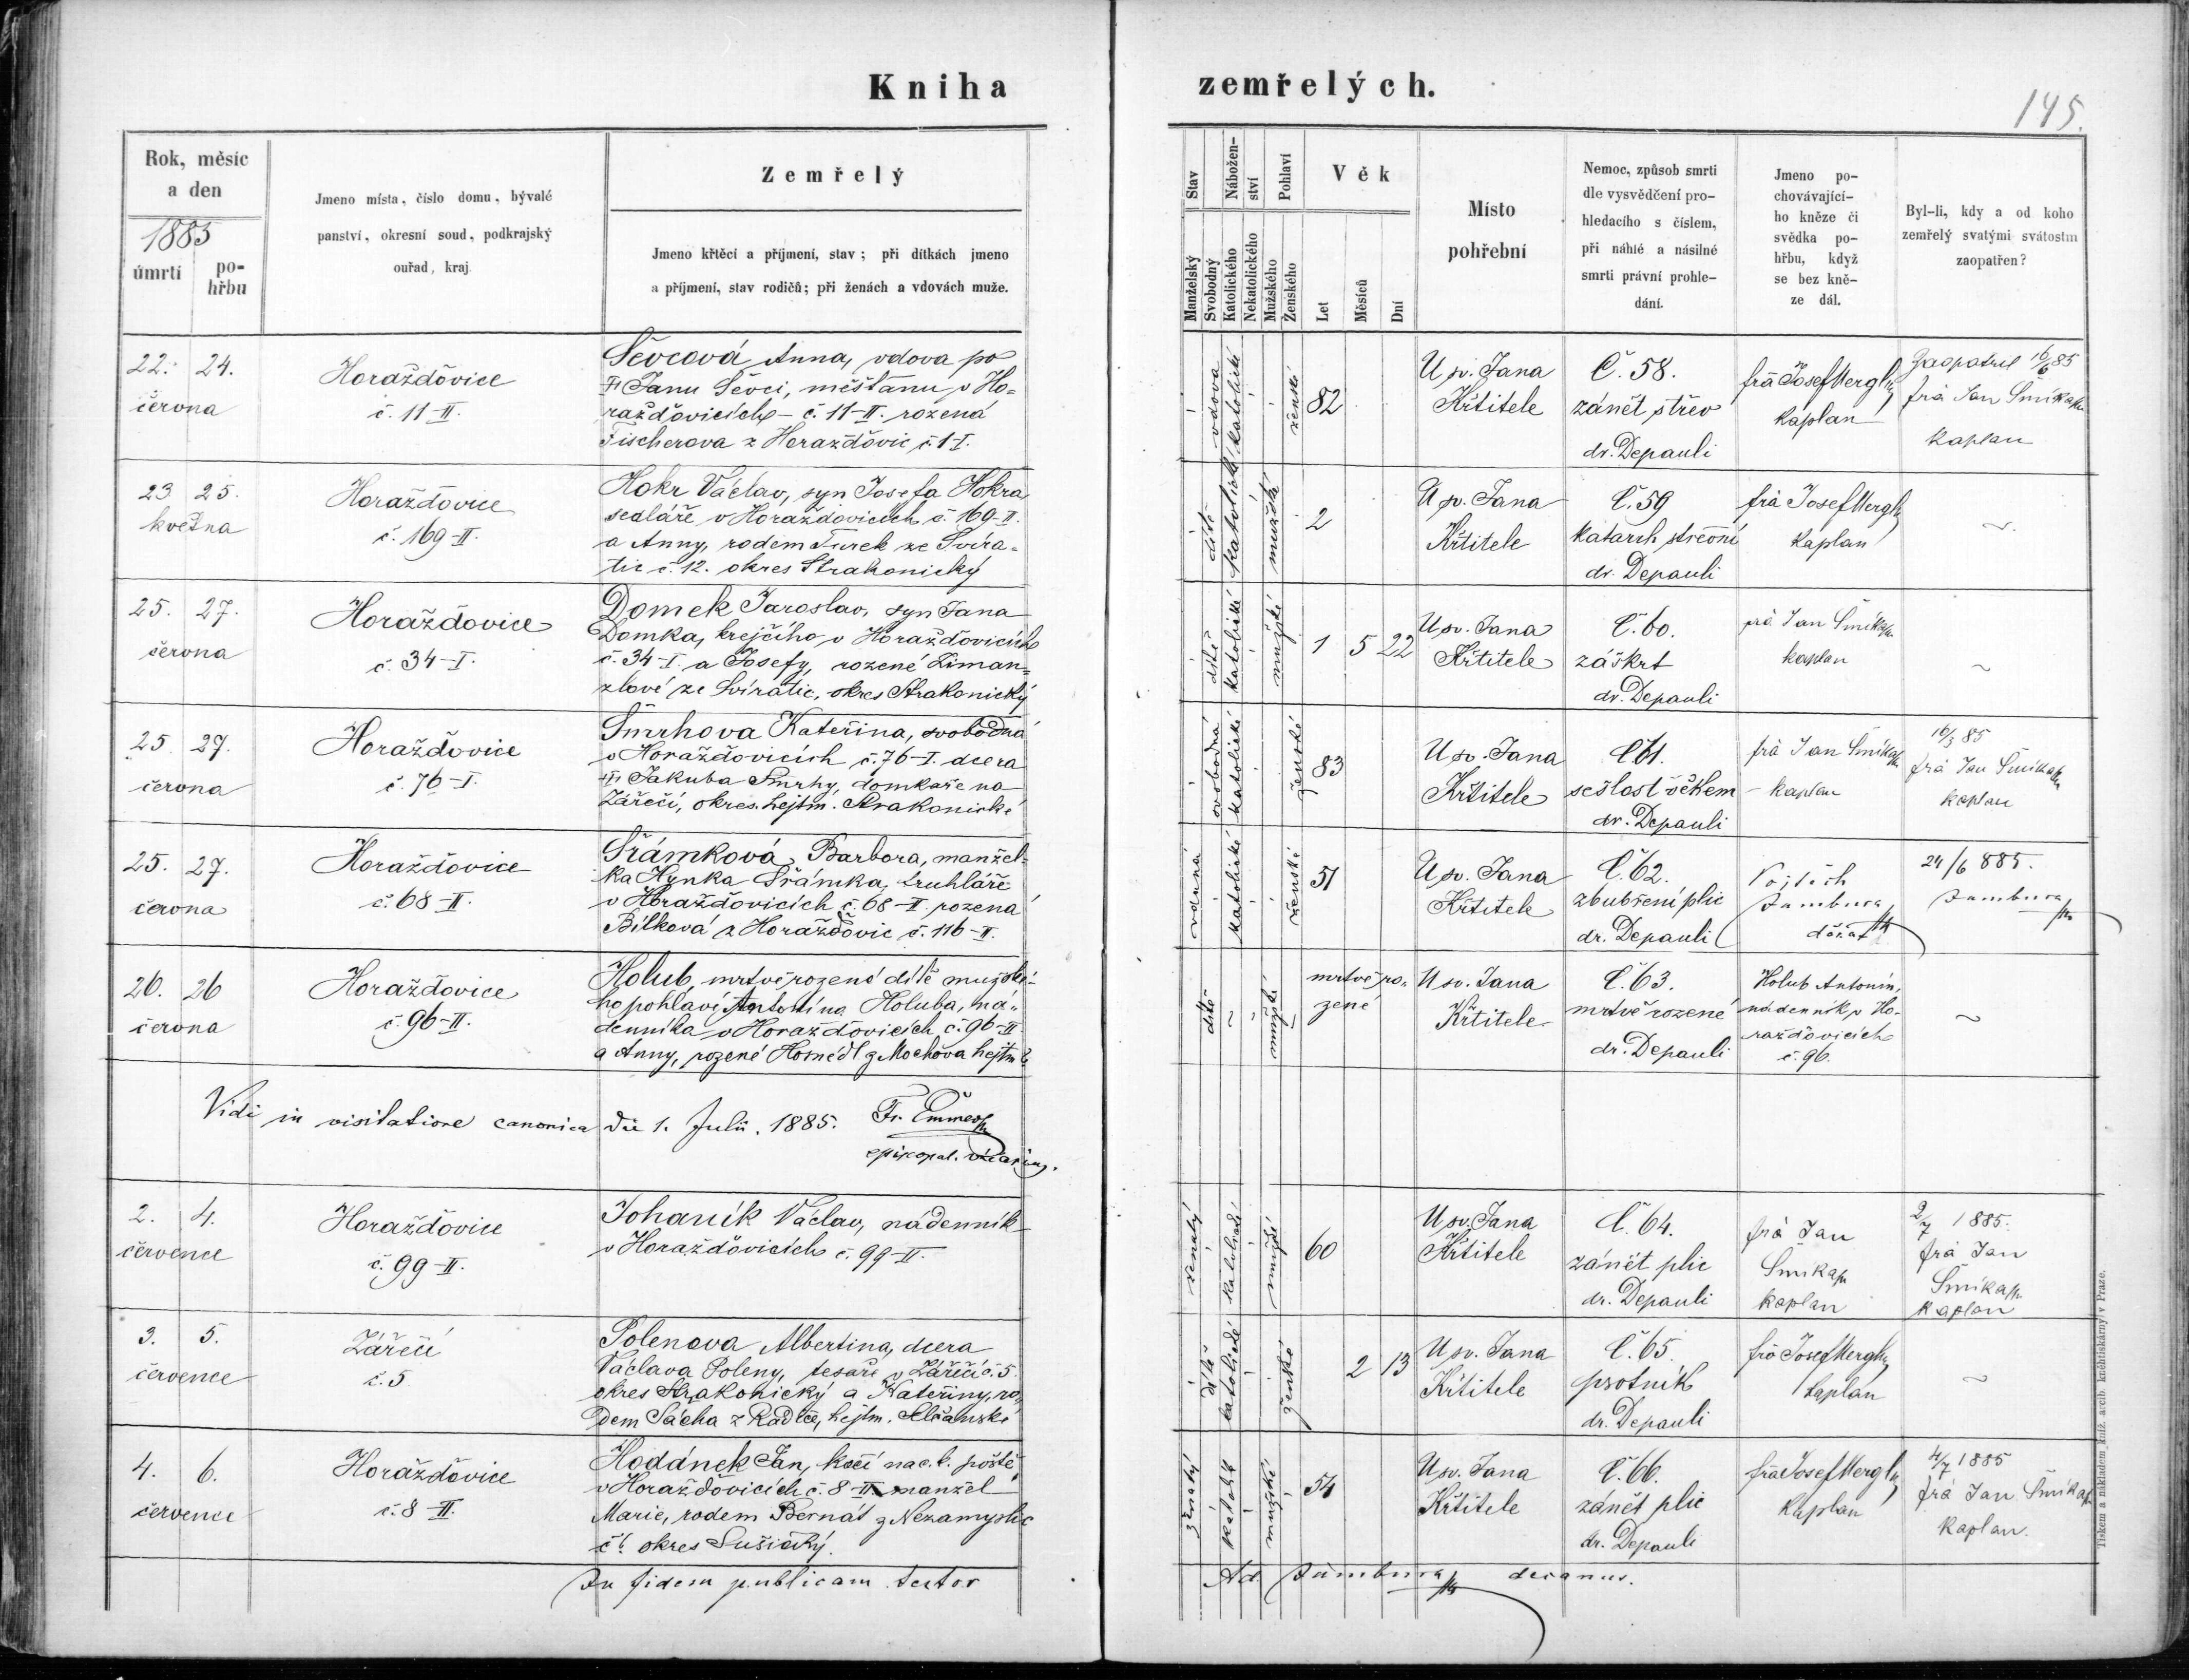 Kniha zemřelých.
145.
Rok, měsíc
a den
1885
úmrtí
po-
hřbu
Jmeno místa, číslo domu, bývalé
panství, okresní soud, podkrajský
ouřad, kraj.
Zemřelý
Jmeno křtěcí a příjmení, stav; při dítkách jmeno
a příjmení, stav rodičů; při ženách a vdovách muže.
Stav
Manželský
Svobodný
Nábožen-
ství
Katolického
Nekatolického
Pohlaví
Mužského
Ženského
Věk
Let
Měsíců
Dní
Místo
pohřební
Nemoc, způsob smrti
dle vysvědčení pro-
hledacího s číslem,
při náhlé a násilné
smrti právní prohle-
dání.
Jmeno po-
chovávající-
ho kněze či
svědka po-
hřbu, když
se bez kně-
ze dál.
Byl-li, kdy a od koho
zemřelý svatými svátostmi
zaopatřen?
22. 24.
června
Horažďovice
č. 11-II.
Ševcová Anna, vdova po
Janu Ševci, měšťanu v Ho=
ražďovicích č. 11-II. rozená
Fischerova z Horažďovic č 1-I.
vdova
katolické
ženské
82
U sv. Jana
Křtitele
Č. 58.
zánět střev
dr. Depauli
frà Josef Mergl
kaplan
Zaopatřil 16/6 85
frà Jan Šmíka
kaplan
23 25.
května
Horažďovice
č. 169-II.
Hokr Václav, syn Josefa Hokra
sedláře v Horažďovicích č. 169-II.
a Anny, rodem Turek ze Svíra=
tic č. 12. okres Strakonický
dítě
katolické
mužské
2
U sv. Jana
Křtitele
Č. 59
katarrh střevní
dr. Depauli
frà Josef Mergl
kaplan
~.
25. 27.
června
Horažďovice
č. 34-I.
Domek Jaroslav, syn Jana
Domka, krejčího v Horažďovicích
č. 34-I. a Josefy, rozené Ziman=
zlové ze Svíratic, okres Strakonický
dítě
katolické
mužské
1 5 22
U sv. Jana
Křtitele
Č. 60.
záškrt
dr. Depauli
frà Jan Šmíka
kaplan
~
25. 27.
června
Horažďovice
č. 76-I.
Šmrhova Kateřina, svobodná
v Horažďovicích č. 76-I. dcera
Jakuba Šmrhy, domkaře na
Zářečí, okres. hejtm. Strakonické
svobodná
katolické
ženské
83
U sv. Jana
Křtitele
Č 61.
sešlost věkem
dr. Depauli
frà Jan Šmíka
kaplan
16/3 85
frà Jan Šmíka
kaplan
25. 27.
června
Horažďovice
č. 68-II.
Šrámková Barbora, manžel=
ka Hynka Šrámka, truhláře
v Horažďovicích č. 68-II rozená
Bílková z Horažďovic č. 116-II.
vdaná
katolické
ženské
51
U sv. Jana
Křtitele
Č. 62.
zbubření plic
dr. Depauli
Vojtěch
Jumbura
děkan
24/6 885.
Jumbura
26. 26
června
Horažďovice
č. 96-II.
Holub, mrtvě rozené dítě mužské-
ho pohlaví Antonína Holuba, ná=
denníka v Horažďovicích č. 96-II
a Anny, rozené Hosnédl z Mochova hejtm
dítě
~
mužské
mrtvě ro=
zené
U sv. Jana
Křtitele
Č. 63.
mrtvě rozené
dr. Depauli
Holub Antonín,
nádenník v Ho-
ražďovicích
č. 96.
~
Vidi in visitatione canonica die 1. Julii. 1885. Fr. Emmer
episcopal. vicarius.
2. 4.
července
Horažďovice
č. 99-II.
Johaník Václav, nádenník
v Horažďovicích č. 99-II.
ženatý
katolické
mužské
60
U sv. Jana
Křtitele
Č. 64.
zánět plic
dr. Depauli
frà Jan
Šmíka
kaplan
2/7 1885.
frà Jan
Šmíka
kaplan
3. 5.
července
Zářečí
č. 5
Polenova Albertina, dcera
Václava Poleny, tesaře v Zářečí č. 5
okres Strakonický a Kateřiny, ro=
dem Sácha z Radče, hejtm.
dítě
katolické
ženské
2 13
U sv. Jana
Křtitele
Č. 65.
psotník
dr. Depauli
frà Josef Mergl
kaplan
~
4. 6.
července
Horažďovice
č. 8-II.
Hodánek Jan, kočí na c. k. poště
v Horažďovicích č. 8-II manžel
Marie, rodem Bernát z Nezamyslic
č 6. okres Sušický.
ženatý
katolík
mužské
54
U sv. Jana
Křtitele
Č. 66.
zánět plic
dr. Depauli
frà Josef Mergl
kaplan
4/7 1885
frà Jan Šmíka
kaplan.
In fidem publicam testor Ad. Jumbura decanus.
Tiskem a nákladem kníž. arcib. knihtiskárny v Praze.